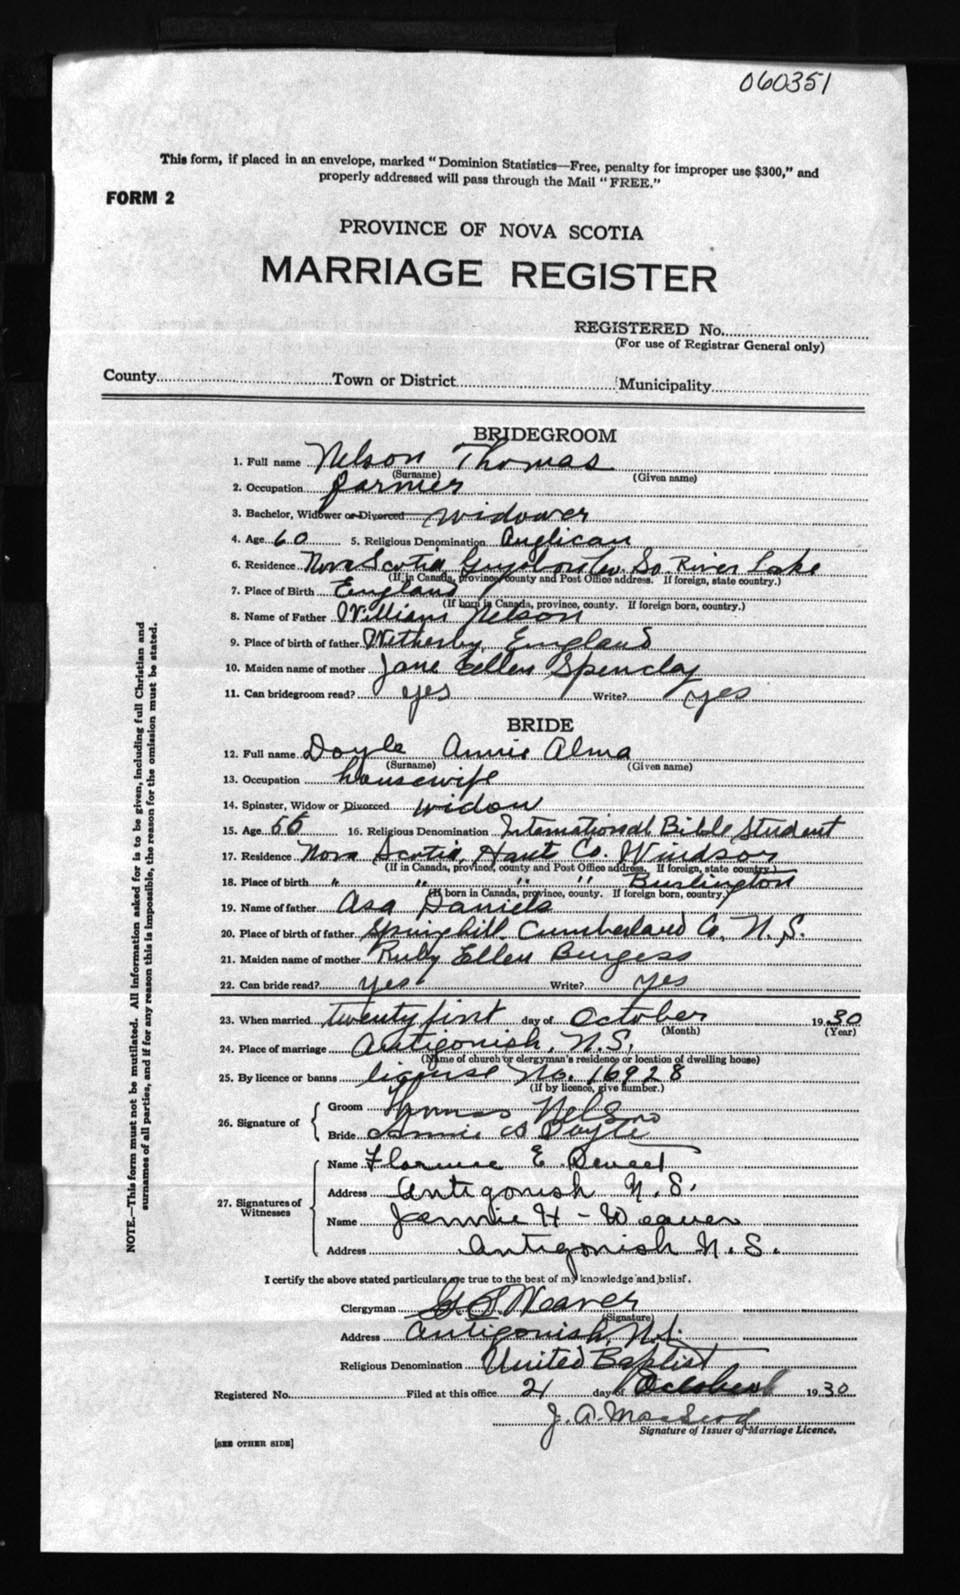 060351
This form, if placed in an envelope, marked "Dominion Statistics—Free, penalty for improper use $300," and
properly addressed will pass through the Mail "FREE."
FORM 2
PROVINCE OF NOVA SCOTIA
MARRIAGE REGISTER
REGISTERED No.
(For use of Registrar General only)
County Town or District Municipality
BRIDEGROOM
1. Full name Nelson Thomas
(Surname) (Given name)
2. Occupation farmer
3. Bachelor, Widower or Divorced widower
4. Age 60 5. Religious Denomination Anglican
6. Residence Nova Scotia, Guysboro So. River Lake
(If in Canada, province, county and Post Office address. If foreign, state country.)
7. Place of Birth England
(If born in Canada, province, county. If foreign born, country.)
8. Name of Father William Nelson
9. Place of birth of father Wetherby, England
10. Maiden name of mother Jane Ellen
11. Can bridegroom read? yes Write? yes
BRIDE
12. Full name Doyle Annie Alma
(Surname) (Given name)
13. Occupation housewife
14. Spinster, Widow or Divorced widow
15. Age 16. Religious Denomination International Bible Student
17. Residence Nova Scotia, Hants Co. Windsor
(If in Canada, province, county and Post Office address. If foreign, state country.)
18. Place of birth " " " " Burlington
(If born in Canada, province, county. If foreign born, country.)
19. Name of father Asa Daniels
20. Place of birth of father Springhill, Cumberland Co, N.S.
21. Maiden name of mother Ruby Ellen Burgess
22. Can bride read? yes Write? yes
23. When married twenty first day of October 1930
(Month) (Year)
24. Place of marriage Antigonish, N.S.
(Name of church or clergyman's residence or location of dwelling house)
25. By licence or banns license No. 16928
(If by licence, give number.)
26. Signature of
Groom Thomas Nelson
Bride Annie A Doyle
27. Signatures of
Witnesses
Name E.
Address Antigonish N.S.
Name Jennie H - Weaver
Address Antigonish N.S.
I certify the above stated particulars are true to the best of my knowledge and belief.
Clergyman Weaver
(Signature)
Address Antigonish, N.S.
Religious Denomination United Baptist
Registered No. Filed at this office 21 day of October 1930
J. A. MacLeod
Signature of Issuer of Marriage Licence.
[SEE OTHER SIDE]
NOTE.—This form must not be mutilated. All information asked for is to be given, including full Christian and
surnames of all parties, and if for any reason this is impossible, the reason for the omission must be stated.